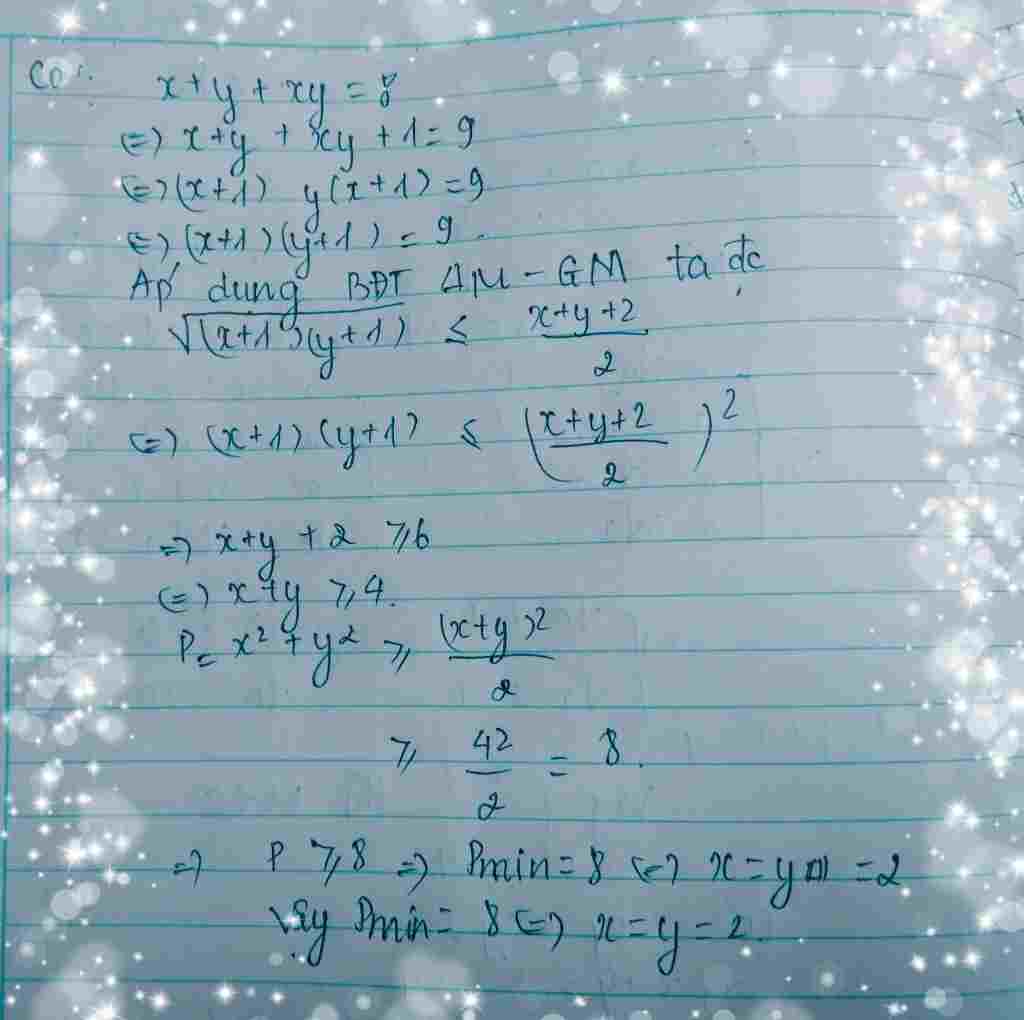 Có: x+y + xy = 8
(=) x+y + xy + 1 = 9
(=) (x+1) y(x+1) = 9
(=) (x+1)(y+1) = 9.
Áp dụng BĐT AM - GM ta đc
√(x+1)(y+1) ≤ x+y+2 / 2
(=) (x+1)(y+1) ≤ (x+y+2 / 2)²
=) x+y + 2 ≥ 6
(=) x+y ≥ 4.
P = x² + y² ≥ (x+y)² / 2
≥ 4² / 2 = 8.
=) P ≥ 8 =) Pmin = 8 (=) x = y = 2
Vậy Pmin = 8 (=) x = y = 2.